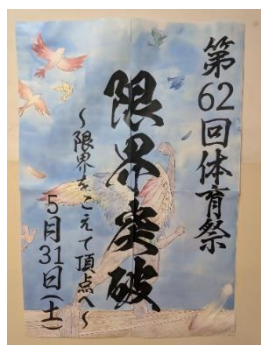 第62回体育祭
限界突破
～限界をこえて頂点へ～
5月31日(土)